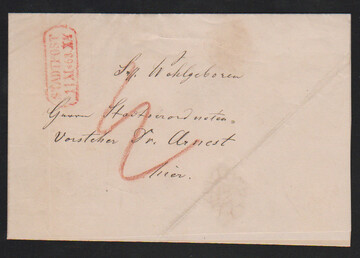 STADTPOST
Sr. Wohlgeboren
Herrn Stadtverordneten-
Vorsteher Dr. Arnest
hier.